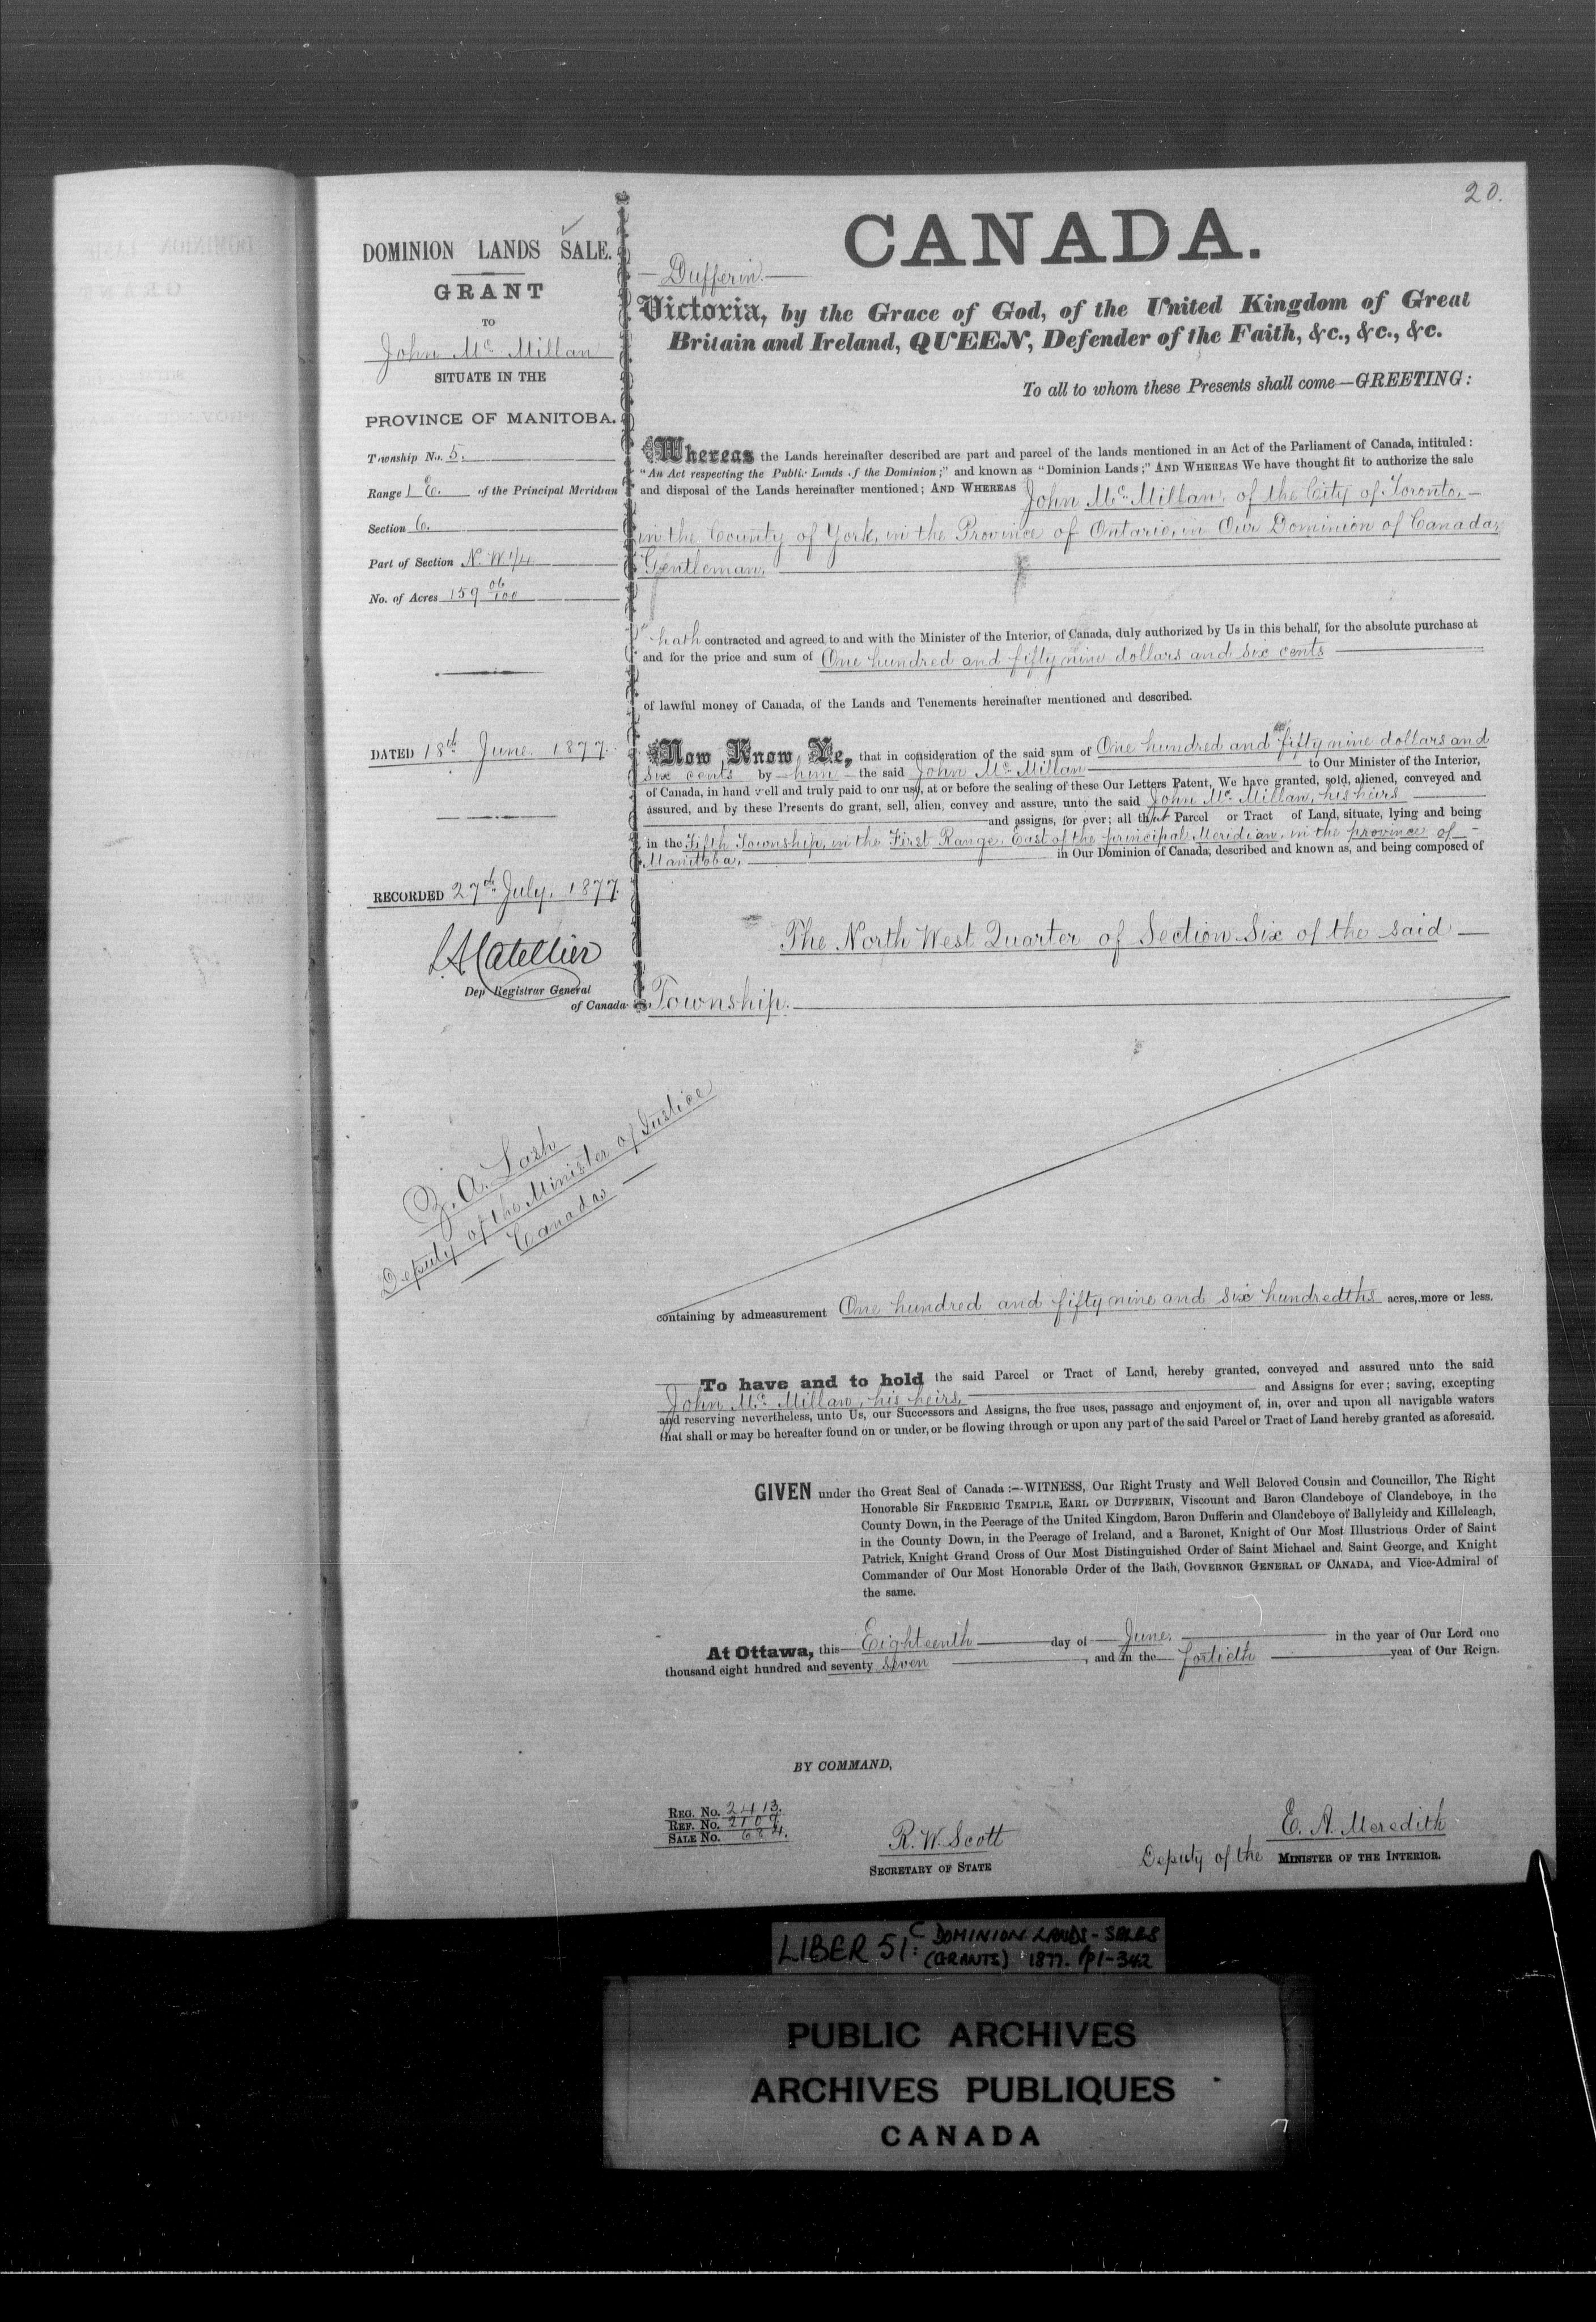 20.
DOMINION LANDS SALE.
GRANT
TO
John Mc Millan
SITUATE IN THE
PROVINCE OF MANITOBA.
Township No. 5.
Range 1 E. of the Principal Meridian
Section 6.
Part of Section N. W 1/4
No. of Acres 159 06/100
DATED 18th June. 1877.
RECORDED 27th July. 1877.
Dep Registrar General
of Canada
Z. A. Lash
Deputy of the Minister of Justice
Canada
CANADA.
Dufferin.
Victoria, by the Grace of God, of the United Kingdom of Great
Britain and Ireland, QUEEN, Defender of the Faith, &c., &c., &c.
To all to whom these Presents shall come—GREETING:
Whereas the Lands hereinafter described are part and parcel of the lands mentioned in an Act of the Parliament of Canada, intituled:
"An Act respecting the Public Lands of the Dominion;" and known as "Dominion Lands;" AND WHEREAS We have thought fit to authorize the sale
and disposal of the Lands hereinafter mentioned; AND WHEREAS John Mc Millan, of the City of Toronto,
in the County of York, in the Province of Ontario, in Our Dominion of Canada,
Gentleman.
hath contracted and agreed to and with the Minister of the Interior, of Canada, duly authorized by Us in this behalf, for the absolute purchase at
and for the price and sum of One hundred and fifty nine dollars and six cents
of lawful money of Canada, of the Lands and Tenements hereinafter mentioned and described.
Now Know Ye, that in consideration of the said sum of One hundred and fifty nine dollars and
six cents by him the said John Mc Millan to Our Minister of the Interior,
of Canada, in hand well and truly paid to our use, at or before the sealing of these Our Letters Patent, We have granted, sold, aliened, conveyed and
assured, and by these Presents do grant, sell, alien, convey and assure, unto the said John Mc Millan, his heirs
and assigns, for ever; all that Parcel or Tract of Land, situate, lying and being
in the Fifth Township, in the First Range, East of the principal Meridian, in the province of
Manitoba, in Our Dominion of Canada, described and known as, and being composed of
The North West Quarter of Section Six of the said
Township.
containing by admeasurement One hundred and fifty nine and six hundredths acres, more or less.
To have and to hold the said Parcel or Tract of Land, hereby granted, conveyed and assured unto the said
John Mc Millan, his heirs, and Assigns for ever; saving, excepting
and reserving nevertheless, unto Us, our Successors and Assigns, the free uses, passage and enjoyment of, in, over and upon all navigable waters
that shall or may be hereafter found on or under, or be flowing through or upon any part of the said Parcel or Tract of Land hereby granted as aforesaid.
GIVEN under the Great Seal of Canada:—WITNESS, Our Right Trusty and Well Beloved Cousin and Councillor, The Right
Honorable Sir FREDERIC TEMPLE, EARL OF DUFFERIN, Viscount and Baron Clandeboye of Clandeboye, in the
County Down, in the Peerage of the United Kingdom, Baron Dufferin and Clandeboye of Ballyleidy and Killeleagh,
in the County Down, in the Peerage of Ireland, and a Baronet, Knight of Our Most Illustrious Order of Saint
Patrick, Knight Grand Cross of Our Most Distinguished Order of Saint Michael and Saint George, and Knight
Commander of Our Most Honorable Order of the Bath, GOVERNOR GENERAL OF CANADA, and Vice-Admiral of
the same.
At Ottawa, this Eighteenth day of June, in the year of Our Lord one
thousand eight hundred and seventy seven, and in the fortieth year of Our Reign.
BY COMMAND,
REG. NO. 2413.
REF. NO. 2107.
SALE NO. 684.
R. W. Scott
SECRETARY OF STATE
E. A. Meredith
Deputy of the MINISTER OF THE INTERIOR.
LIBER 51C: DOMINION LANDS - SALES
(GRANTS) 1877. pp1-342
PUBLIC ARCHIVES
ARCHIVES PUBLIQUES
CANADA